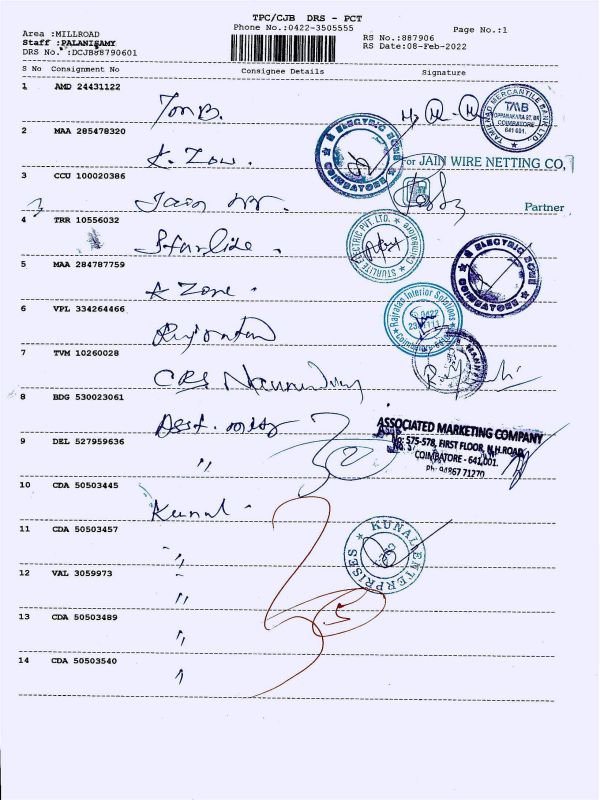 TPC/CJB DRS - PCT
Area :MILLROAD
Phone No.:0422-3505555
Page No.:1
Staff :PALANISAMY
RS No.:887906
DRS No. :DCJB88790601
RS Date:08-Feb-2022
S No Consignment No Consignee Details Signature
1 AMD 24431122
TMB.
TAMILNAD MERCANTILE BANK LTD.
TMB
COIMBATORE
641 001.
2 MAA 285478320
K. Zow.
ELECTRIC ZONE
COIMBATORE
For JAIN WIRE NETTING CO,
3 CCU 100020386
Jain
Partner
4 TRR 10556032
Sturlite.
STURLITE ELECTRIC PVT. LTD.
COIMBATORE
5 MAA 284787759
K Zone.
ELECTRIC ZONE
COIMBATORE
6 VPL 334264466
Rajratan Interior Solutions
0422
7 TVM 10260028
CRS
8 BDG 530023061
ASSOCIATED MARKETING COMPANY
No: 575-578, FIRST FLOOR, N.H.ROAD,
COIMBATORE - 641 001.
ph: 94867 71270
9 DEL 527959636
"
2
10 CDA 50503445
Kunal -
11 CDA 50503457
"
KUNAL ENTERPRISES
12 VAL 3059973
"
5
13 CDA 50503489
"
14 CDA 50503540